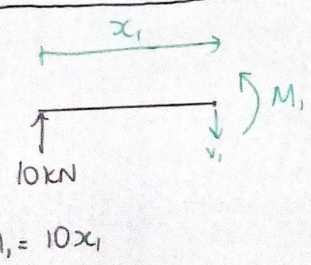 x₁
M₁
V₁
10kN
₁ = 10x₁